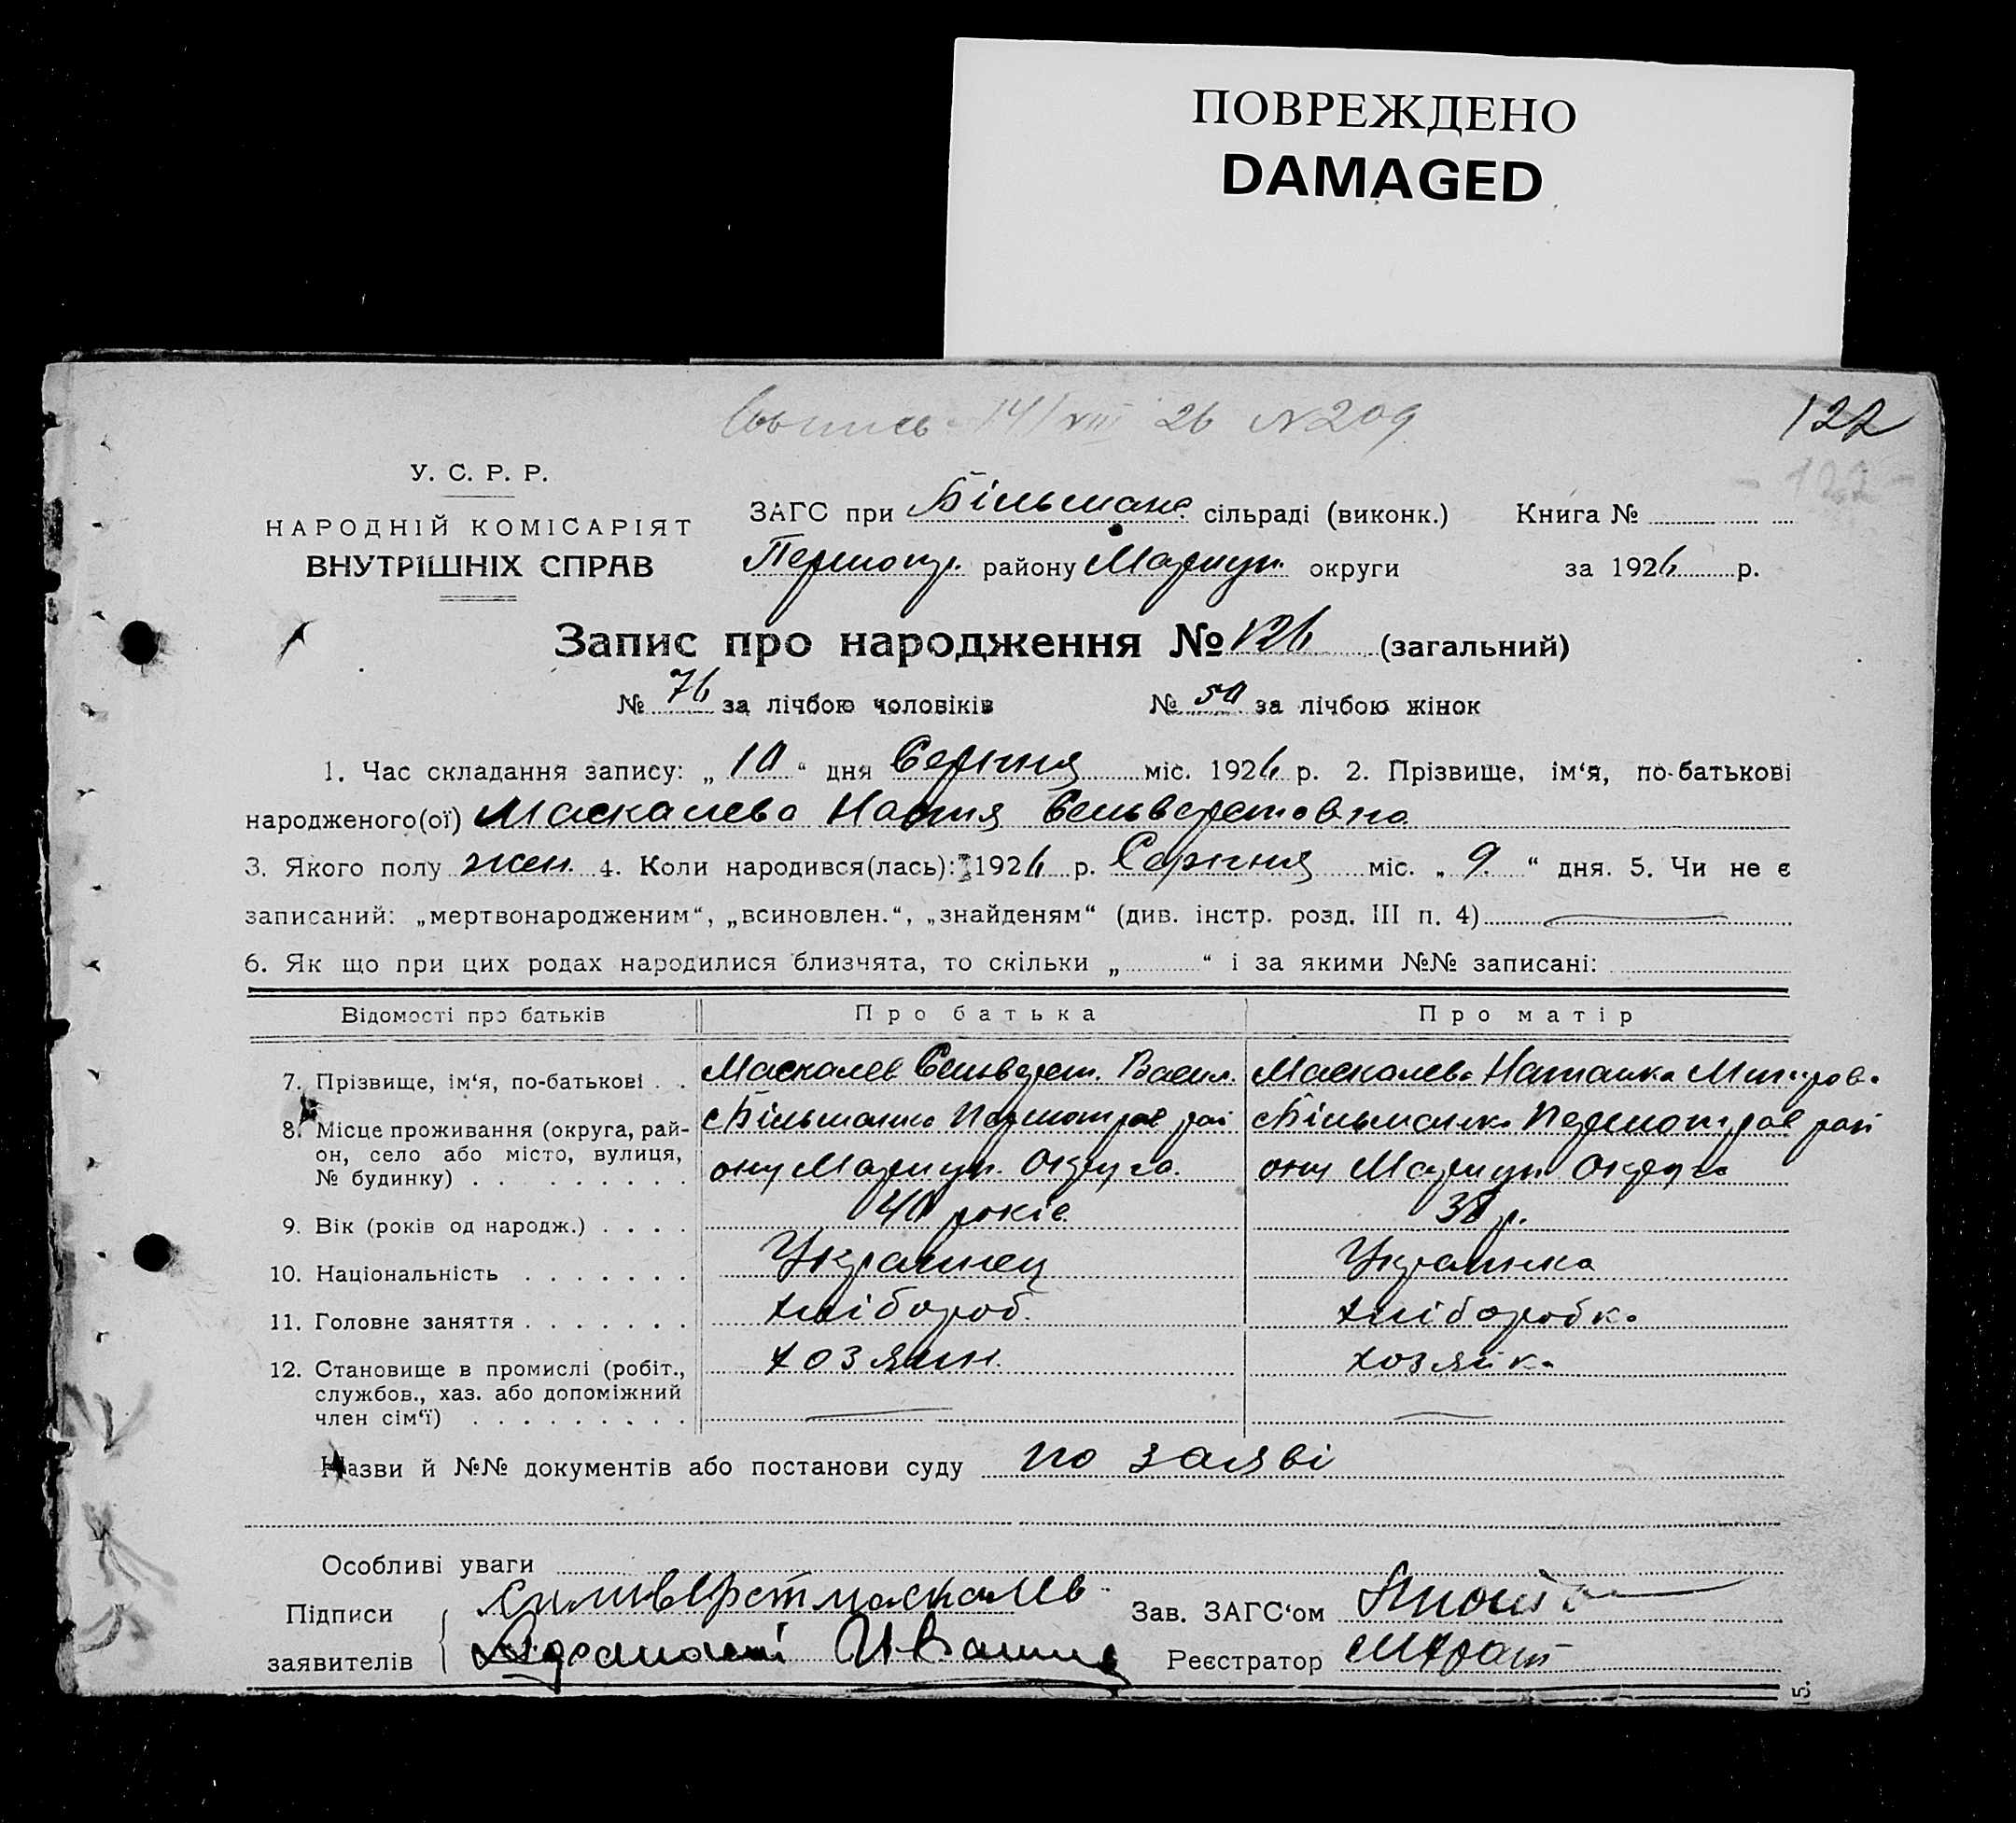 ПОВРЕЖДЕНО
DAMAGED
14/VIII 26 N209
122
- 122 -
У. С. Р. Р.
НАРОДНІЙ КОМІСАРІЯТ
ВНУТРІШНІХ СПРАВ
ЗАГС при Більман. сільраді (виконк.) Книга №
Першотр. району Маріуп. округи за 1926 р.
Запис про народження № 126 (загальний)
№ 76 за лічбою чоловіків № 50 за лічбою жінок
1. Час складання запису: „ 10 “ дня Серпня міс. 1926 р. 2. Прізвище, ім‘я, по-батькові
народженого(ої) Маскалева Настя Сельверстовна
3. Якого полу жен. 4. Коли народився(лась): 1926 р. Серпня міс. „ 9. “ дня. 5. Чи не є
записаний: „мертвонародженим“, „всиновлен.“, „знайденям“ (див. інстр. розд. III п. 4)
6. Як що при цих родах народилися близнята, то скільки „ “ і за якими №№ записані:
Відомості про батьків Про батька Про матір
7. Прізвище, ім‘я, по-батькові . . Маскалев Сельверст. Васил. Маскалева Наталка Митров.
8. Місце проживання (округа, рай- с Більманка Першотрав рай с Більманка Першотрав рай
он, село або місто, вулиця,
№ будинку) . . . . . . . . . ону Маріуп. Округа. ону Маріуп Округа
9. Вік (років од народж.) . . . . 40 років 38 р.
10. Національність . . . . . . . Украинец Украинка
11. Головне заняття . . . . . . . хлібороб. хліборобка
12. Становище в промислі (робіт., хозяин. хозяйка
службов., хаз. або допоміжний
член сім‘ї) . . . . . . . . .
Назви й №№ документів або постанови суду по заяві
Особливі уваги
Підписи Силиверст маскалев Зав. ЗАГС‘ом
заявителів Реєстратор
15.